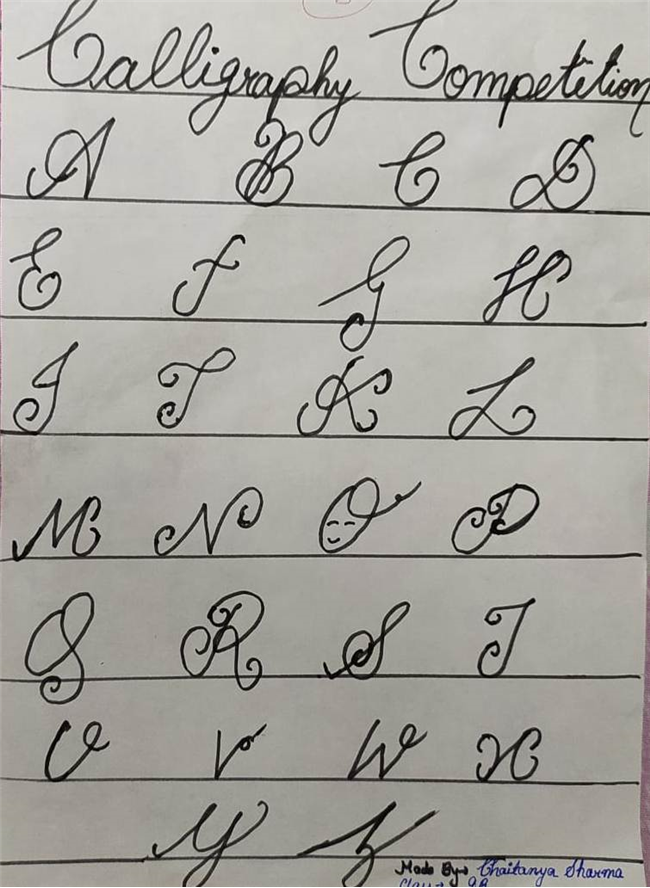 Calligraphy Competition
A B C D
E F G H
I J K L
M N O P
Q R S T
U V W X
Y Z
Made By→ Chaitanya Sharma
Class→ 9B